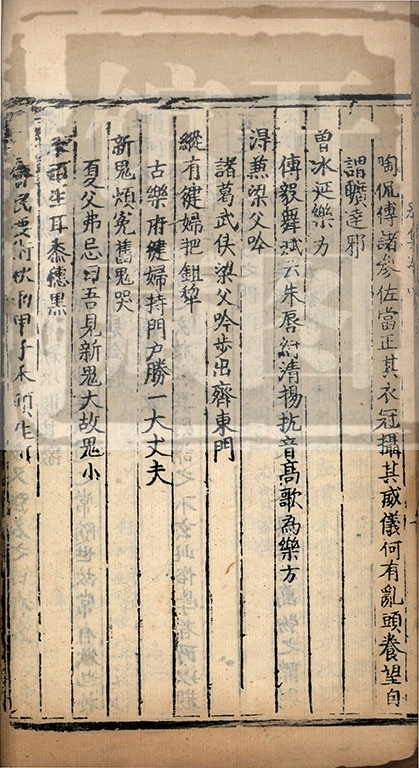 陶侃傳諸參佐當正其衣冠攝其威儀何有亂頭養望自
謂曠達邪
曾冰延樂方
傅毅舞賦云朱唇紆清揚抗音高歌為樂方
淂兼梁父吟
諸葛武侯梁父吟步出齊東門
縱有健婦把鉏犂
古樂府健婦持門户勝一大丈夫
新鬼煩寃舊鬼哭
夏父弗忌曰吾見新鬼大故鬼小
禾頭生耳黍穗黒
民要術秋雨甲子禾頭生耳